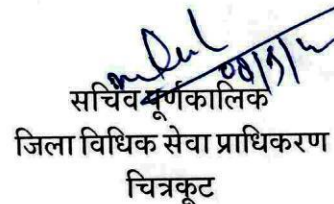 सचिव पूर्णकालिक
जिला विधिक सेवा प्राधिकरण
चित्रकूट